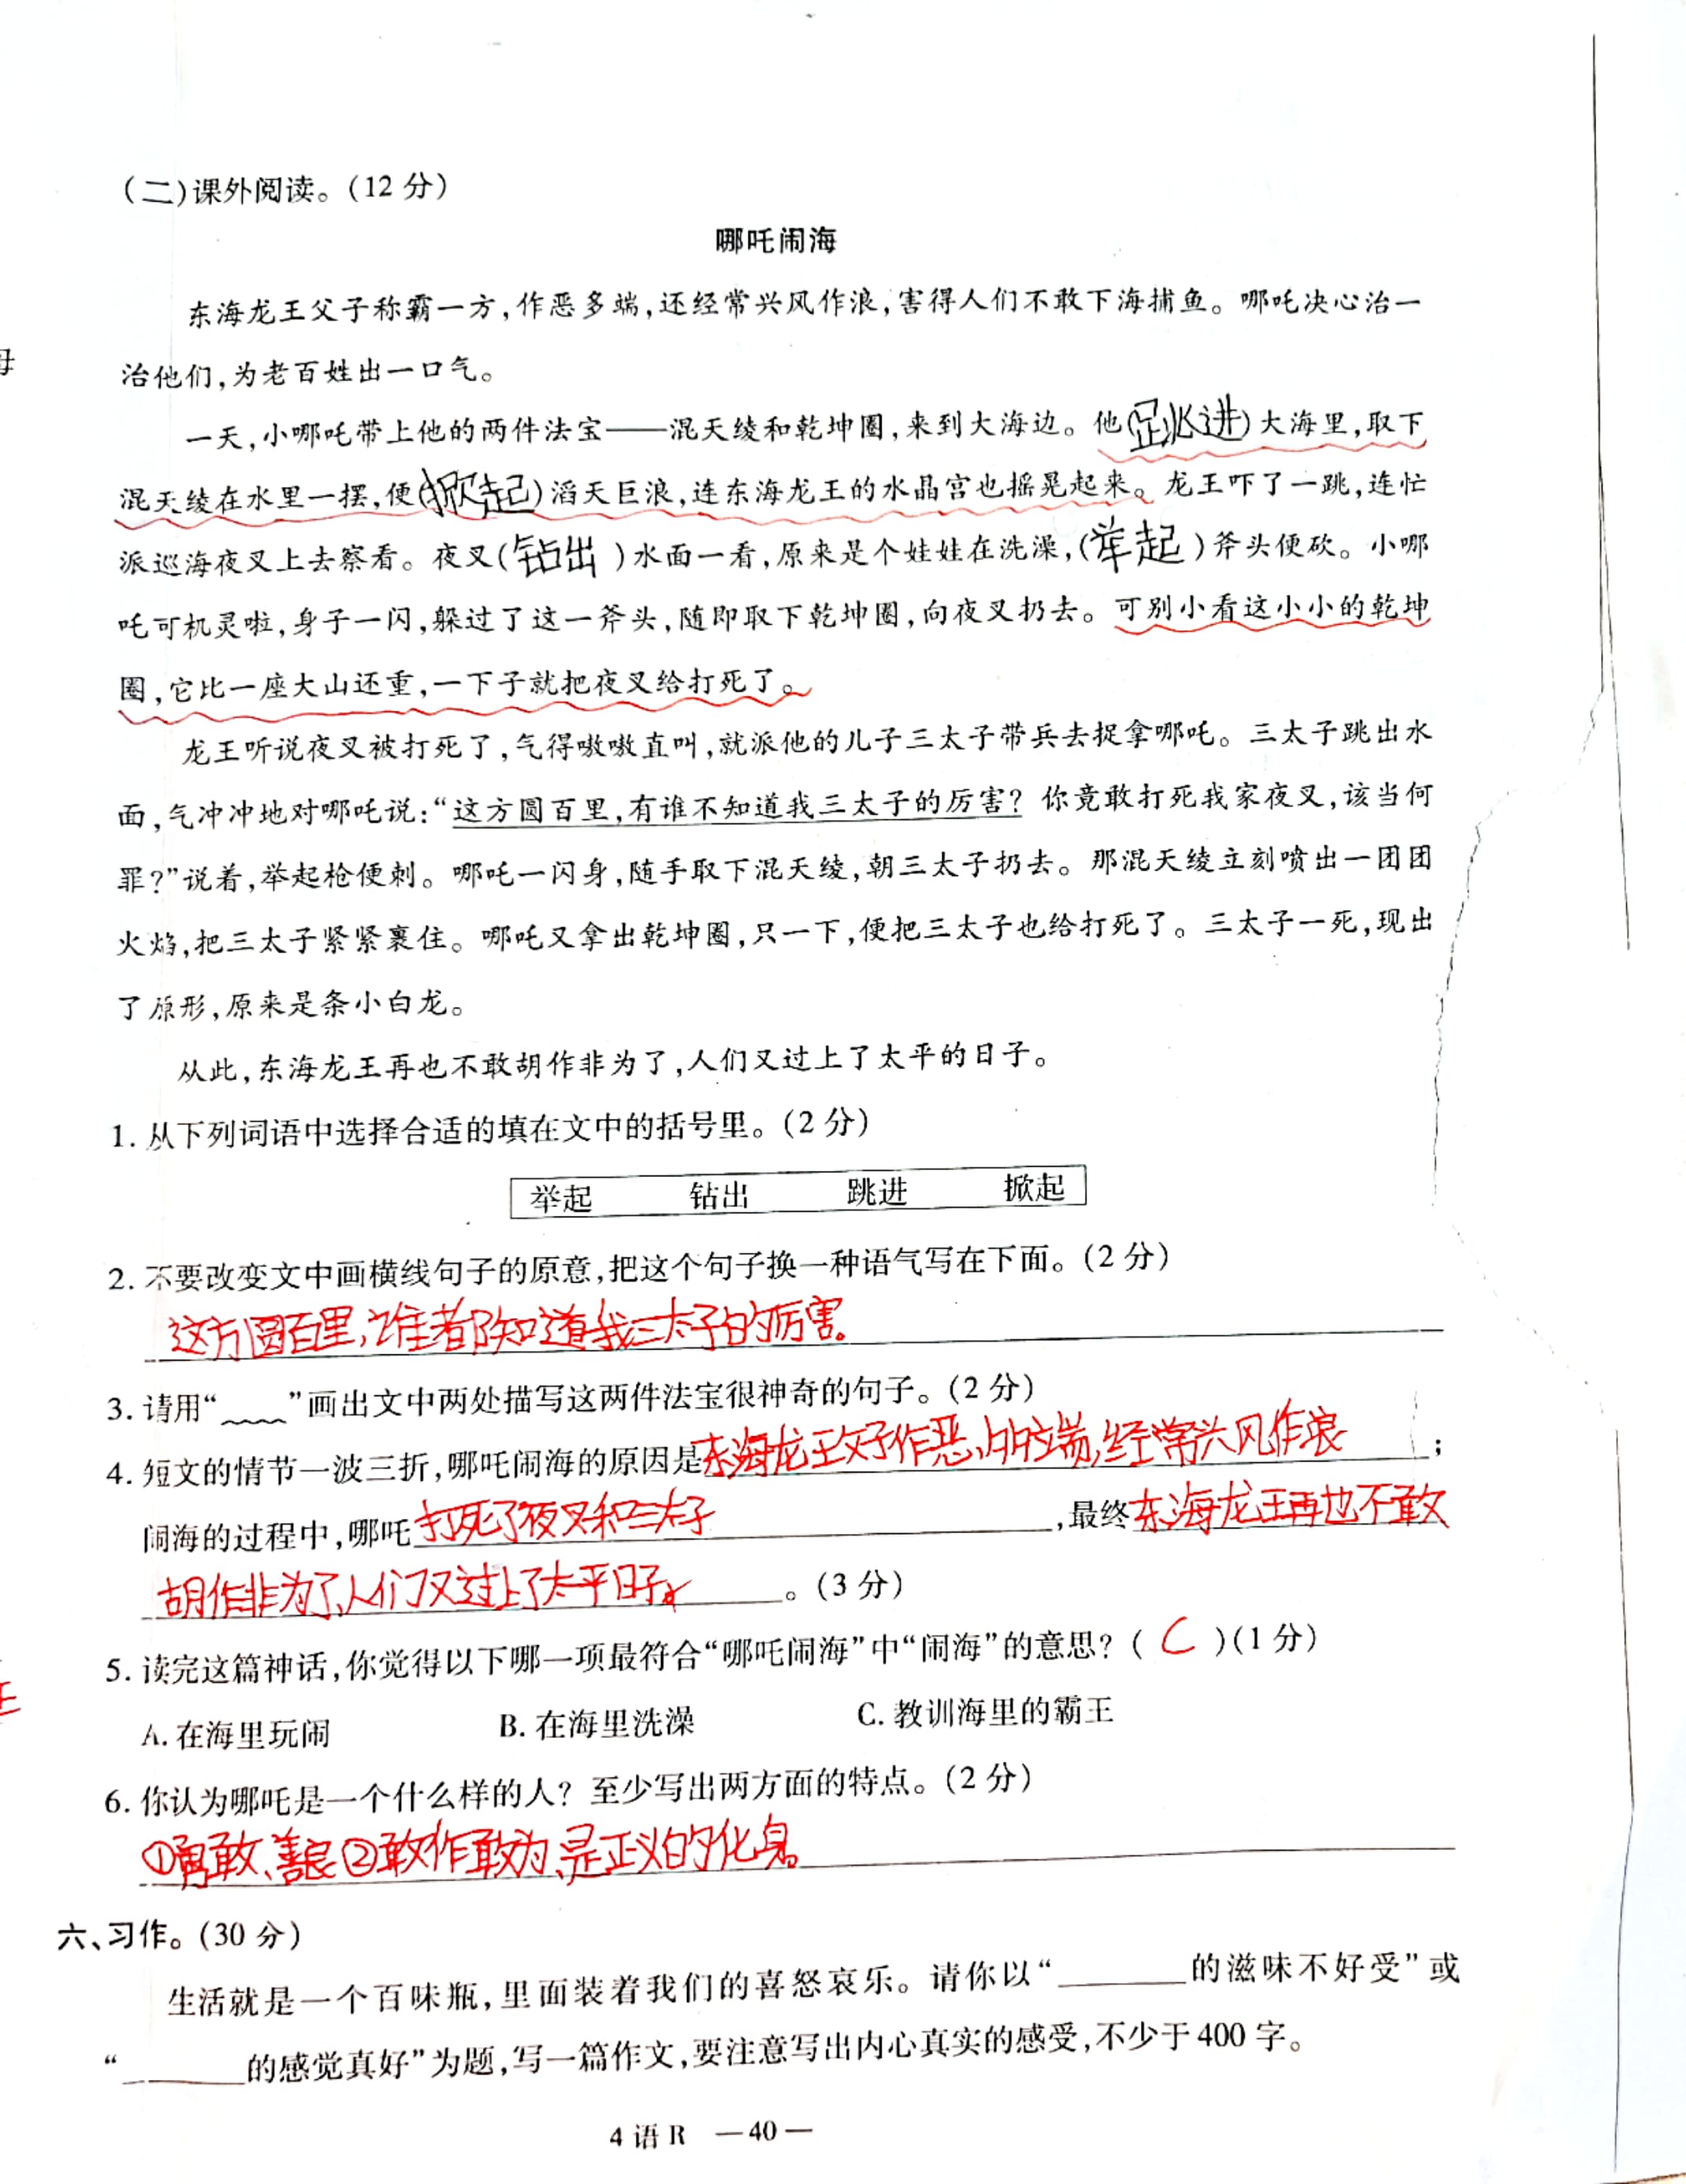 (二)课外阅读。(12 分)
哪吒闹海
东海龙王父子称霸一方,作恶多端,还经常兴风作浪,害得人们不敢下海捕鱼。哪吒决心治一
治他们,为老百姓出一口气。
一天,小哪吒带上他的两件法宝——混天绫和乾坤圈,来到大海边。他(跳进)大海里,取下
混天绫在水里一摆,便(掀起)滔天巨浪,连东海龙王的水晶宫也摇晃起来。龙王吓了一跳,连忙
派巡海夜叉上去察看。夜叉(钻出)水面一看,原来是个娃娃在洗澡,(举起)斧头便砍。小哪
吒可机灵啦,身子一闪,躲过了这一斧头,随即取下乾坤圈,向夜叉扔去。可别小看这小小的乾坤
圈,它比一座大山还重,一下子就把夜叉给打死了。
龙王听说夜叉被打死了,气得嗷嗷直叫,就派他的儿子三太子带兵去捉拿哪吒。三太子跳出水
面,气冲冲地对哪吒说:“这方圆百里,有谁不知道我三太子的厉害?你竟敢打死我家夜叉,该当何
罪?”说着,举起枪便刺。哪吒一闪身,随手取下混天绫,朝三太子扔去。那混天绫立刻喷出一团团
火焰,把三太子紧紧裹住。哪吒又拿出乾坤圈,只一下,便把三太子也给打死了。三太子一死,现出
了原形,原来是条小白龙。
从此,东海龙王再也不敢胡作非为了,人们又过上了太平的日子。
1. 从下列词语中选择合适的填在文中的括号里。(2 分)
举起 钻出 跳进 掀起
2. 不要改变文中画横线句子的原意,把这个句子换一种语气写在下面。(2 分)
这方圆百里,谁都知道我三太子的厉害。
3. 请用“﹏﹏”画出文中两处描写这两件法宝很神奇的句子。(2 分)
4. 短文的情节一波三折,哪吒闹海的原因是东海龙王父子作恶多端,经常兴风作浪;
闹海的过程中,哪吒打死了夜叉和三太子,最终东海龙王再也不敢
胡作非为了,人们又过上了太平日子。(3 分)
5. 读完这篇神话,你觉得以下哪一项最符合“哪吒闹海”中“闹海”的意思?( C )(1 分)
A. 在海里玩闹 B. 在海里洗澡 C. 教训海里的霸王
6. 你认为哪吒是一个什么样的人?至少写出两方面的特点。(2 分)
①勇敢、善良②敢作敢为、是正义的化身。
六、习作。(30 分)
生活就是一个百味瓶,里面装着我们的喜怒哀乐。请你以“______的滋味不好受”或
“______的感觉真好”为题,写一篇作文,要注意写出内心真实的感受,不少于 400 字。
4 语 R —40—